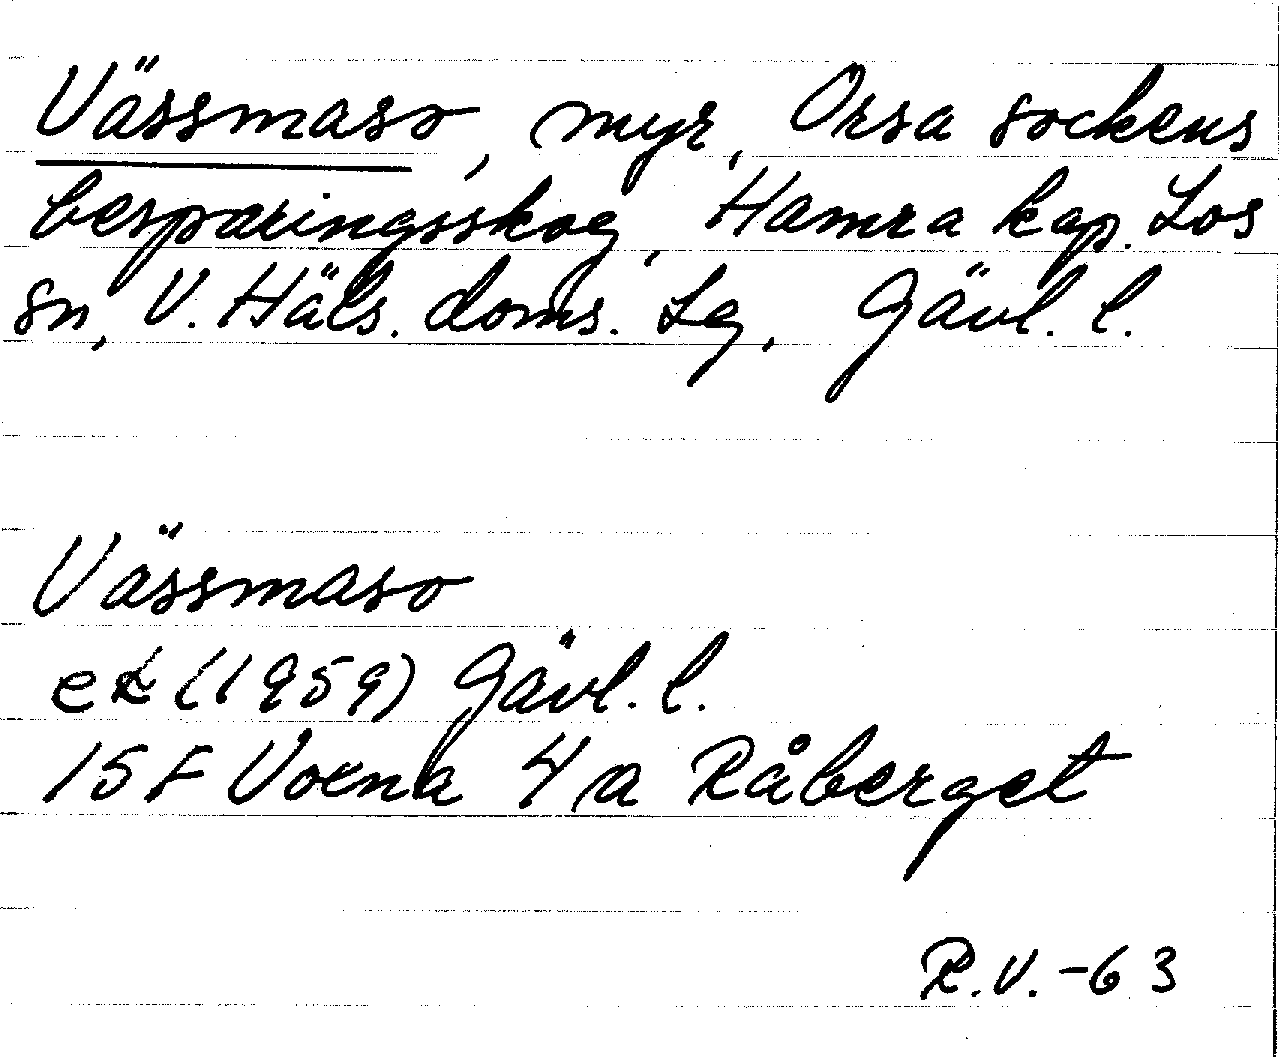 Vässmaso, myr, Orsa sockens
besparingsskog, Hamra kap. Los
sn, V. Häls. doms. Lg, Gävl. l.
Vässmaso
ek (1959) Gävl. l.
15F Voxna 4a Råberget
R.V. -63